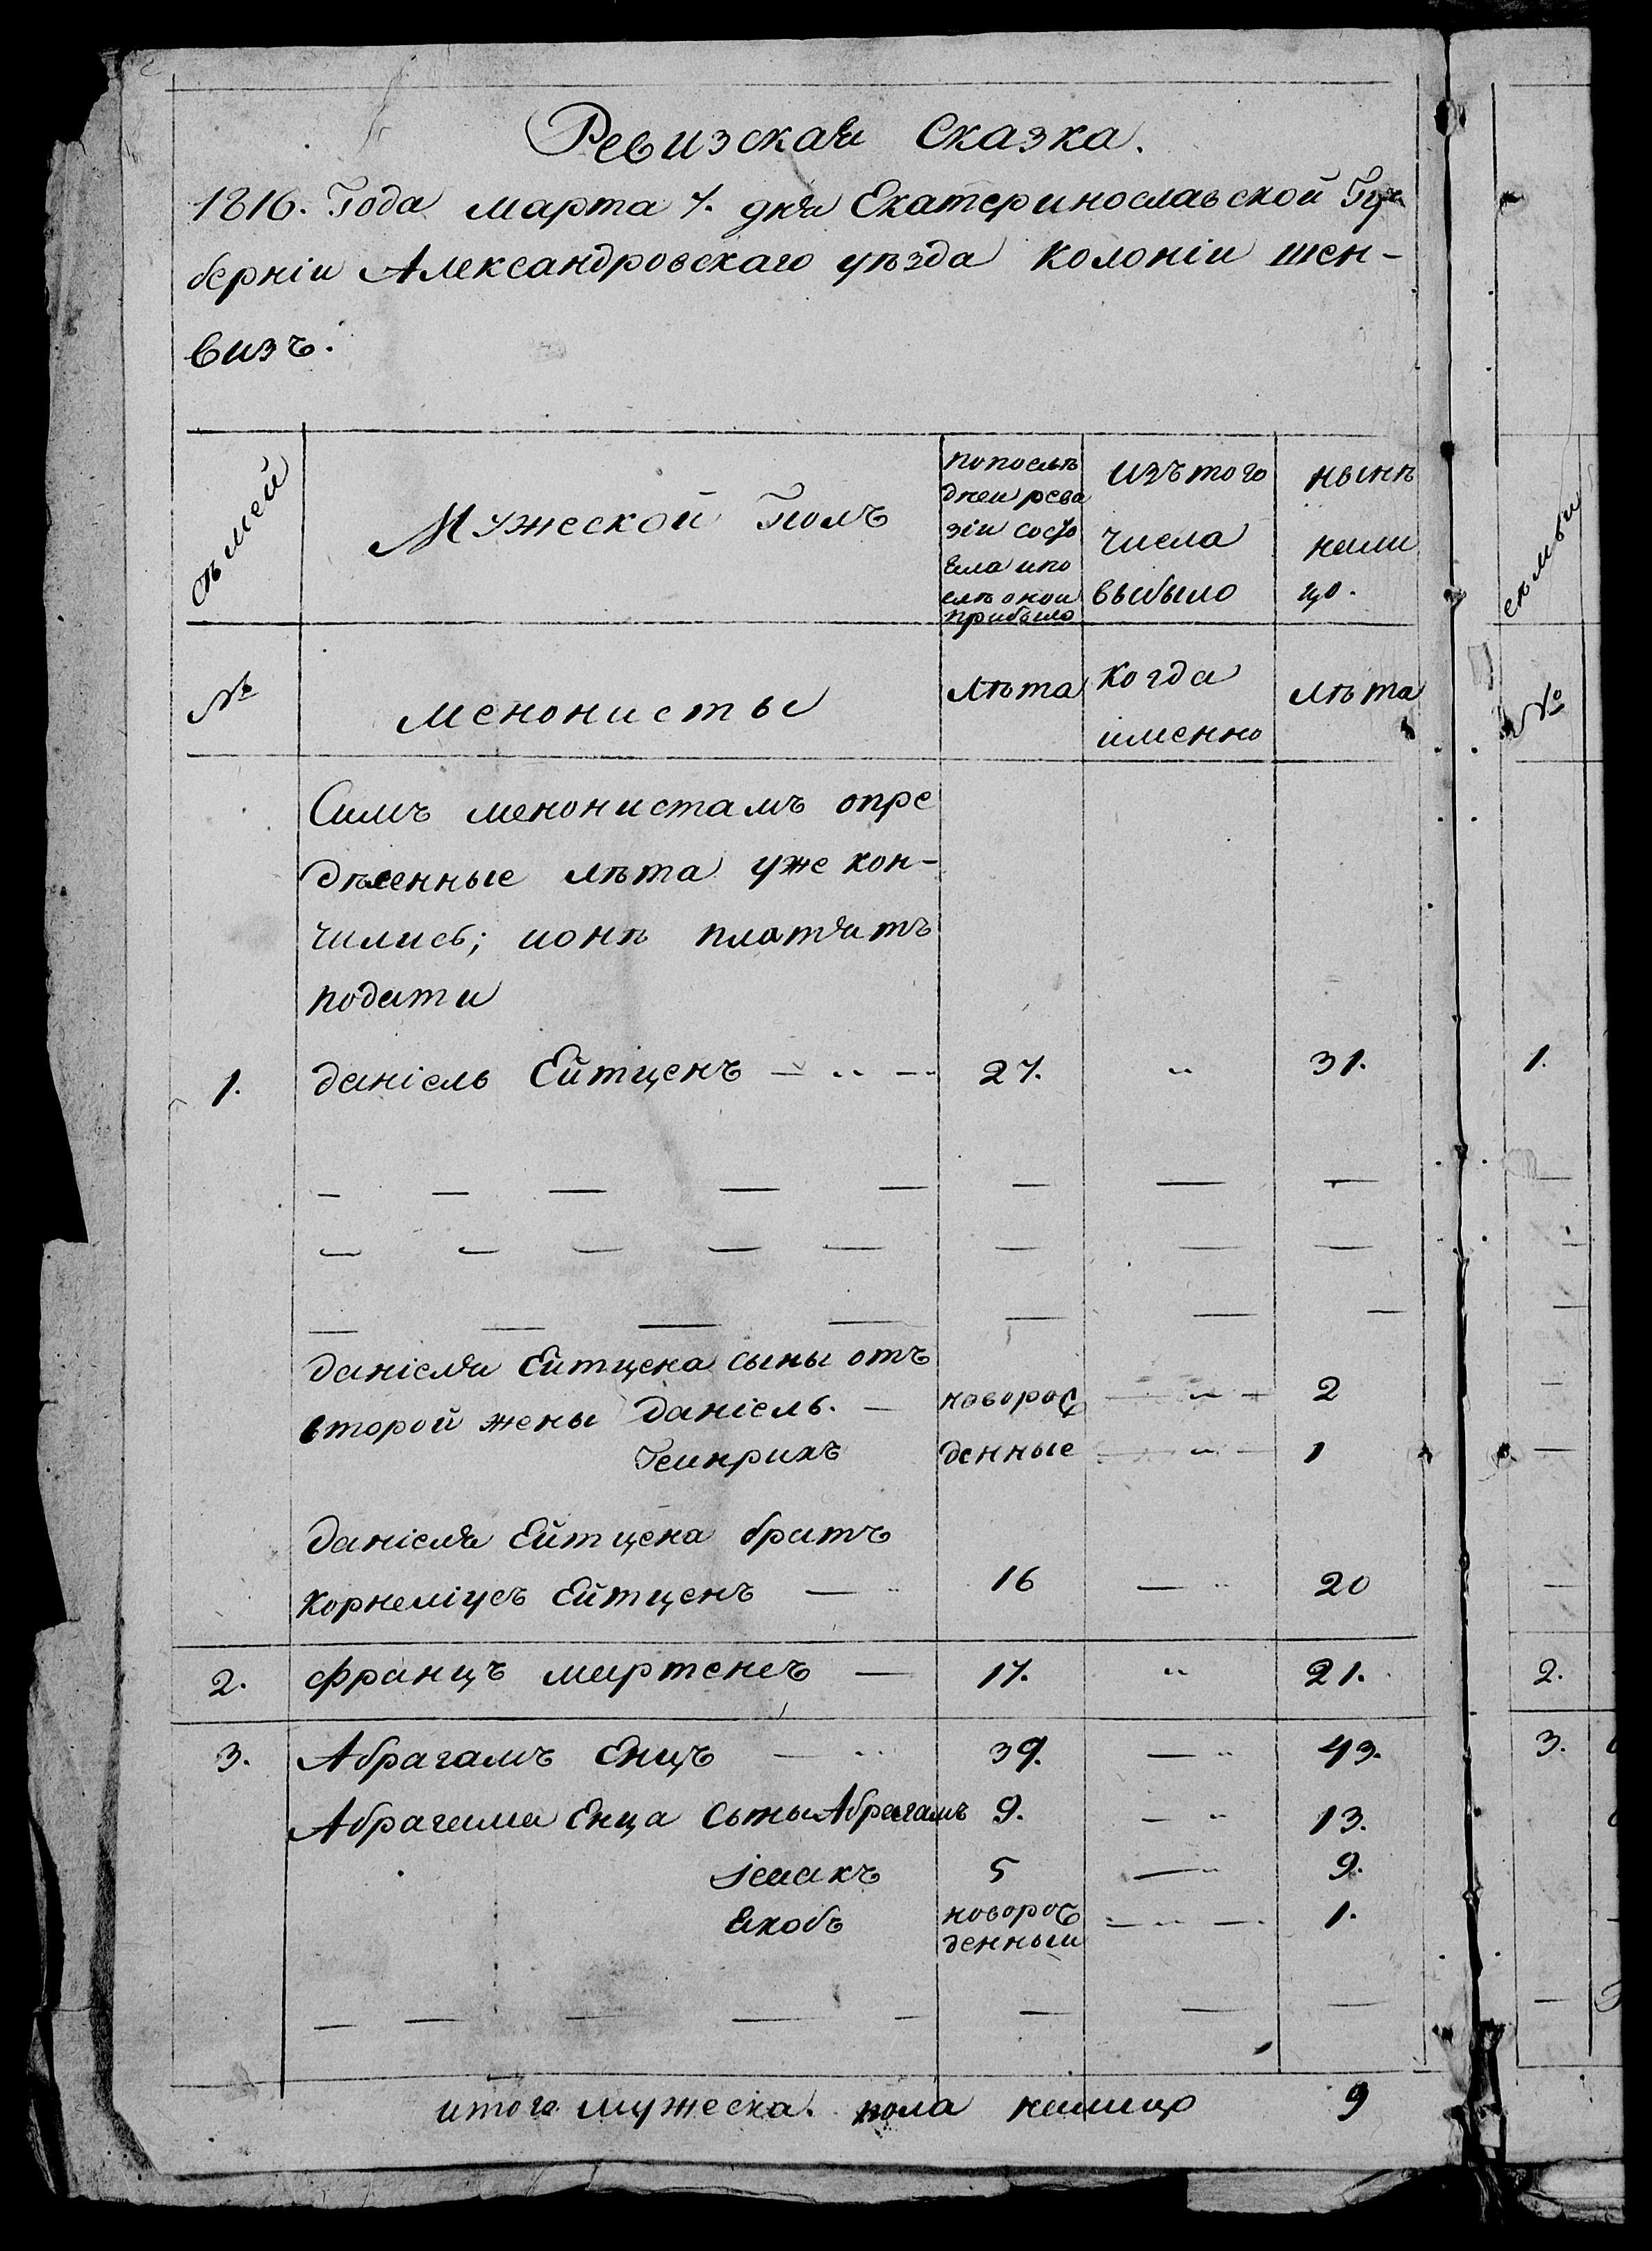 Ревизская Сказка.
1816. Года марта 7. дня Екатеринославской Гу
берніи Александровскаго уѣзда Колоніи шен-
визъ.
сѣмей
Мужеской Полъ
попослѣ
дней реви
зіи состо
яла ипо
слѣ оной
прибыло
изъ того
числа
выбыло
нынѣ
нали
цо.
№
менонисты
лѣта
когда
именно
лѣта
Симъ менонистамъ опре
дѣленные лѣта уже кон-
чились; ионѣ платятъ
подати
1. даніель Ейтценъ — „ — 27. „ 31.
даніеля Ейтцена сыны отъ
второй жены даніель. — новорож — „ — 2
Генрихъ денные — „ — 1
даніеля Ейтцена братъ
корнеліусъ Ейтценъ — „ 16 — „ 20
2. францъ мартенсъ — 17. „ 21.
3. Абрагамъ Енцъ — „ 39. — „ 43.
Абрагама Енца сыны Абрагамъ 9. — „ 13.
Ісаакъ 5 — „ 9.
Якобъ новорож
денный — „ — 1.
итого мужеска. пола налицо 9
сѣмьи
№
1.
2.
3.